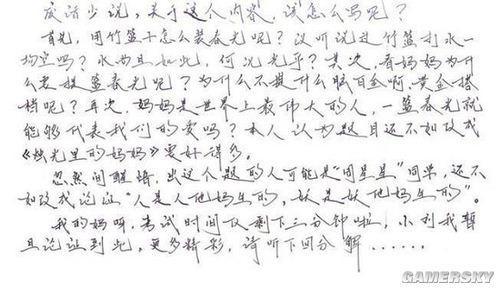 废话少说，关于这人内容，该怎么写呢？
首先，用竹篮子怎么装春光呢？没听说过竹篮打水一
场空吗？水尚且如此，何况光乎？其次，看妈妈为什
么要提篮春光呢？为什么不提什么脑白金啊，黄金搭
档呢？再次，妈妈是世界上最伟大的人，一篮春光就
能够代表我们的爱吗？本人认为题目还不如改成
《烛光里的妈妈》要好得多。
忽然间醒悟，出这个题的人可能是“周星星”同学，还不
如改成论证“人是人他妈生的，妖是妖他妈生的”。
我的妈呀，考试时间仅剩下三分钟啦，小利我暂
且论证到此，更多精彩，请听下回分解……
GAMERSKY